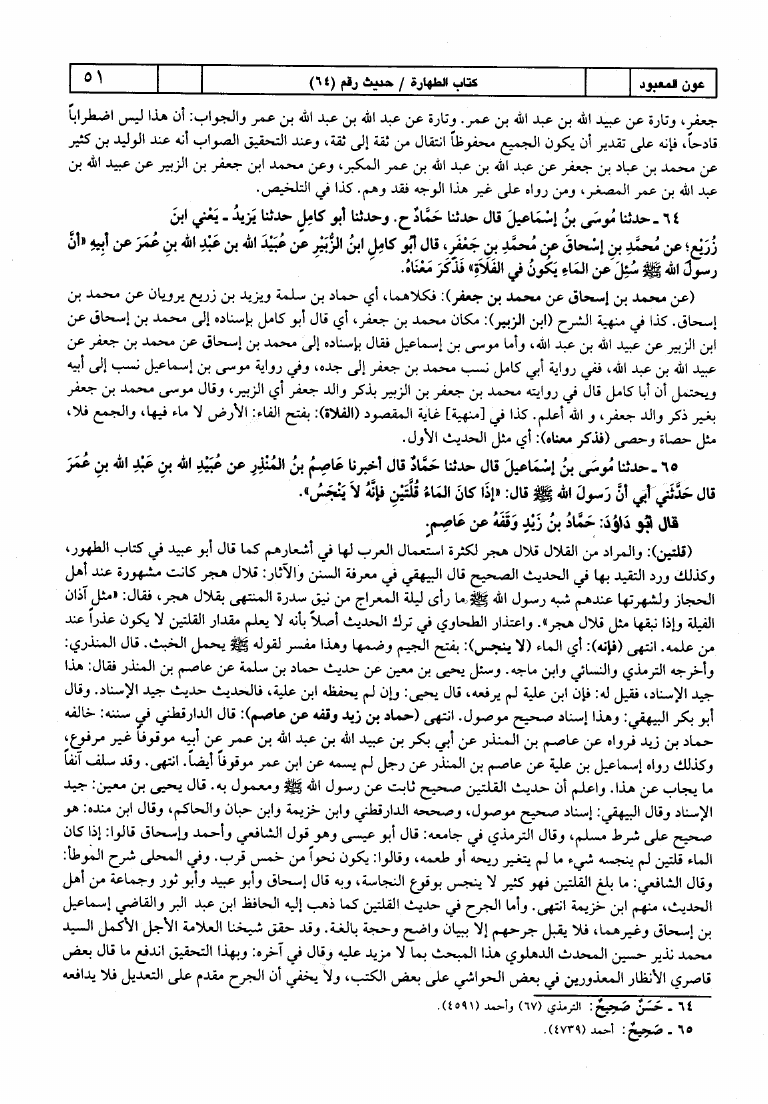 عون المعبود كتاب الطهارة / حديث رقم (٦٤) ٥١
جعفر، وتارة عن عبيد الله بن عبد الله بن عمر. وتارة عن عبد الله بن عبد الله بن عمر والجواب: أن هذا ليس اضطراباً
قادحاً، فإنه على تقدير أن يكون الجميع محفوظاً انتقال من ثقة إلى ثقة، وعند التحقيق الصواب أنه عند الوليد بن كثير
عن محمد بن عباد بن جعفر عن عبد الله بن عبد الله بن عمر المكبر، وعن محمد ابن جعفر بن الزبير عن عبيد الله بن
عبد الله بن عمر المصغر، ومن رواه على غير هذا الوجه فقد وهم. كذا في التلخيص.
٦٤ ـ حدثنا مُوسَى بنُ إسْمَاعيلَ قال حدثنا حَمَّادٌ ح. وحدثنا أبو كاملٍ حدثنا يَزيدُ ـ يَعْني ابنَ
زُرَيْعٍ؛ عن مُحمَّدِ بنِ إسْحاقَ عن مُحمَّدِ بنِ جَعْفَرٍ، قال أبُو كاملٍ ابنُ الزُّبَيْرِ عن عُبَيْدَ الله بن عَبْدِ الله بنِ عُمَرَ عن أبِيهِ «أنَّ
رسولَ الله ﷺ سُئِلَ عن المَاءِ يَكُونُ في الفَلَاةِ» فَذَكَرَ مَعْنَاهُ.
(عن محمد بن إسحاق عن محمد بن جعفر): فكلاهما، أي حماد بن سلمة ويزيد بن زريع يرويان عن محمد بن
إسحاق. كذا في منهية الشرح (ابن الزبير): مكان محمد بن جعفر، أي قال أبو كامل بإسناده إلى محمد بن إسحاق عن
ابن الزبير عن عبيد الله بن عبد الله، وأما موسى بن إسماعيل فقال بإسناده إلى محمد بن إسحاق عن محمد بن جعفر عن
عبيد الله بن عبد الله، ففي رواية أبي كامل نسب محمد بن جعفر إلى جده، وفي رواية موسى بن إسماعيل نسب إلى أبيه
ويحتمل أن أبا كامل قال في روايته محمد بن جعفر بن الزبير بذكر والد جعفر أي الزبير، وقال موسى محمد بن جعفر
بغير ذكر والد جعفر، و الله أعلم. كذا في [منهية] غاية المقصود (الفلاة): بفتح الفاء: الأرض لا ماء فيها، والجمع فلا،
مثل حصاة وحصى (فذكر معناه): أي مثل الحديث الأول.
٦٥ ـ حدثنا مُوسَى بنُ إسْمَاعيلَ قال حدثنا حَمَّادٌ قال أخبرنا عَاصِمُ بنُ المُنْذِرِ عن عُبَيْدِ الله بنِ عَبْدِ الله بنِ عُمَرَ
قال حَدَّثَني أبي أنَّ رَسولَ الله ﷺ قال: «إذَا كانَ المَاءُ قُلَّتَيْنِ فَإنَّهُ لاَ يَنْجَسُ».
قال أبُو دَاوُدَ: حَمَّادُ بنُ زَيْدٍ وَقَفَهُ عن عَاصِمٍ.
(قلتين): والمراد من القلال قلال هجر لكثرة استعمال العرب لها في أشعارهم كما قال أبو عبيد في كتاب الطهور،
وكذلك ورد التقيد بها في الحديث الصحيح قال البيهقي في معرفة السنن والآثار: قلال هجر كانت مشهورة عند أهل
الحجاز ولشهرتها عندهم شبه رسول الله ﷺ ما رأى ليلة المعراج من نيق سدرة المنتهى بقلال هجر، فقال: «مثل آذان
الفيلة وإذا نبقها مثل قلال هجر». واعتذار الطحاوي في ترك الحديث أصلاً بأنه لا يعلم مقدار القلتين لا يكون عذراً عند
من علمه. انتهى (فإنه): أي الماء (لا ينجس): بفتح الجيم وضمها وهذا مفسر لقوله ﷺ يحمل الخبث. قال المنذري:
وأخرجه الترمذي والنسائي وابن ماجه. وسئل يحيى بن معين عن حديث حماد بن سلمة عن عاصم بن المنذر فقال: هذا
جيد الإسناد، فقيل له: فإن ابن علية لم يرفعه، قال يحيى: وإن لم يحفظه ابن علية، فالحديث حديث جيد الإسناد. وقال
أبو بكر البيهقي: وهذا إسناد صحيح موصول. انتهى (حماد بن زيد وقفه عن عاصم): قال الدارقطني في سننه: خالفه
حماد بن زيد فرواه عن عاصم بن المنذر عن أبي بكر بن عبيد الله بن عبد الله بن عمر عن أبيه موقوفاً غير مرفوع،
وكذلك رواه إسماعيل بن علية عن عاصم بن المنذر عن رجل لم يسمه عن ابن عمر موقوفاً أيضاً. انتهى. وقد سلف آنفاً
ما يجاب عن هذا. واعلم أن حديث القلتين صحيح ثابت عن رسول الله ﷺ ومعمول به. قال يحيى بن معين: جيد
الإسناد وقال البيهقي: إسناد صحيح موصول، وصححه الدارقطني وابن خزيمة وابن حبان والحاكم، وقال ابن منده: هو
صحيح على شرط مسلم، وقال الترمذي في جامعه: قال أبو عيسى وهو قول الشافعي وأحمد وإسحاق قالوا: إذا كان
الماء قلتين لم ينجسه شيء ما لم يتغير ريحه أو طعمه، وقالوا: يكون نحواً من خمس قرب. وفي المحلى شرح الموطأ:
وقال الشافعي: ما بلغ القلتين فهو كثير لا ينجس بوقوع النجاسة، وبه قال إسحاق وأبو عبيد وأبو ثور وجماعة من أهل
الحديث، منهم ابن خزيمة انتهى. وأما الجرح في حديث القلتين كما ذهب إليه الحافظ ابن عبد البر والقاضي إسماعيل
بن إسحاق وغيرهما، فلا يقبل جرحهم إلا ببيان واضح وحجة بالغة. وقد حقق شيخنا العلامة الأجل الأكمل السيد
محمد نذير حسين المحدث الدهلوي هذا المبحث بما لا مزيد عليه وقال في آخره: وبهذا التحقيق اندفع ما قال بعض
قاصري الأنظار المعذورين في بعض الحواشي على بعض الكتب، ولا يخفي أن الجرح مقدم على التعديل فلا يدافعه
٦٤ ـ حَسَنٌ صَحِيحٌ: الترمذي (٦٧) وأحمد (٤٥٩١).
٦٥ ـ صَحِيحٌ: أحمد (٤٧٣٩).